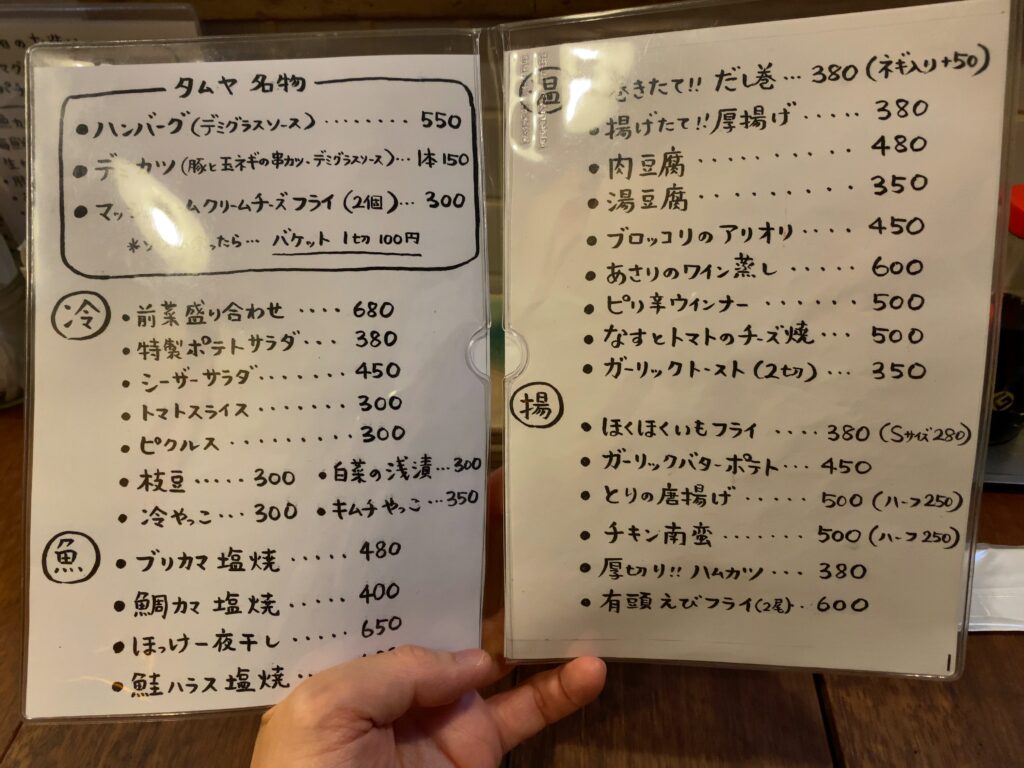 タムヤ 名物
●ハンバーグ(デミグラスソース)........ 550
●デミカツ(豚と玉ネギの串カツ-デミグラスソース)... 1本150
●クリームチーズフライ(2個)... 300
バケット 1切 100円
冷
●前菜盛り合わせ .... 680
●特製ポテトサラダ... 380
●シーザーサラダ...... 450
●トマトスライス ....... 300
●ピクルス ......... 300
●枝豆 ..... 300 ●白菜の浅漬...300
●冷やっこ... 300 ●キムチやっこ...350
魚
●ブリカマ塩焼 ...... 480
●鯛カマ 塩焼 ..... 400
●ほっけ一夜干し ..... 650
●鮭ハラス 塩焼 ...
温
巻きたて!! だし巻 ... 380 (ネギ入り+50)
●揚げたて!! 厚揚げ ..... 380
●肉豆腐 ......... 480
●湯豆腐 ......... 350
●ブロッコリのアリオリ .... 450
●あさりのワイン蒸し ..... 600
●ピリ辛ウインナー ....... 500
●なすとトマトのチーズ焼 .... 500
●ガーリックトースト(2切) ... 350
揚
●ほくほくいもフライ .... 380 (Sサイズ280)
●ガーリックバターポテト... 450
●とりの唐揚げ ...... 500 (ハーフ250)
●チキン南蛮 ....... 500 (ハーフ250)
●厚切り!! ハムカツ ... 380
●有頭えびフライ(2尾). 600